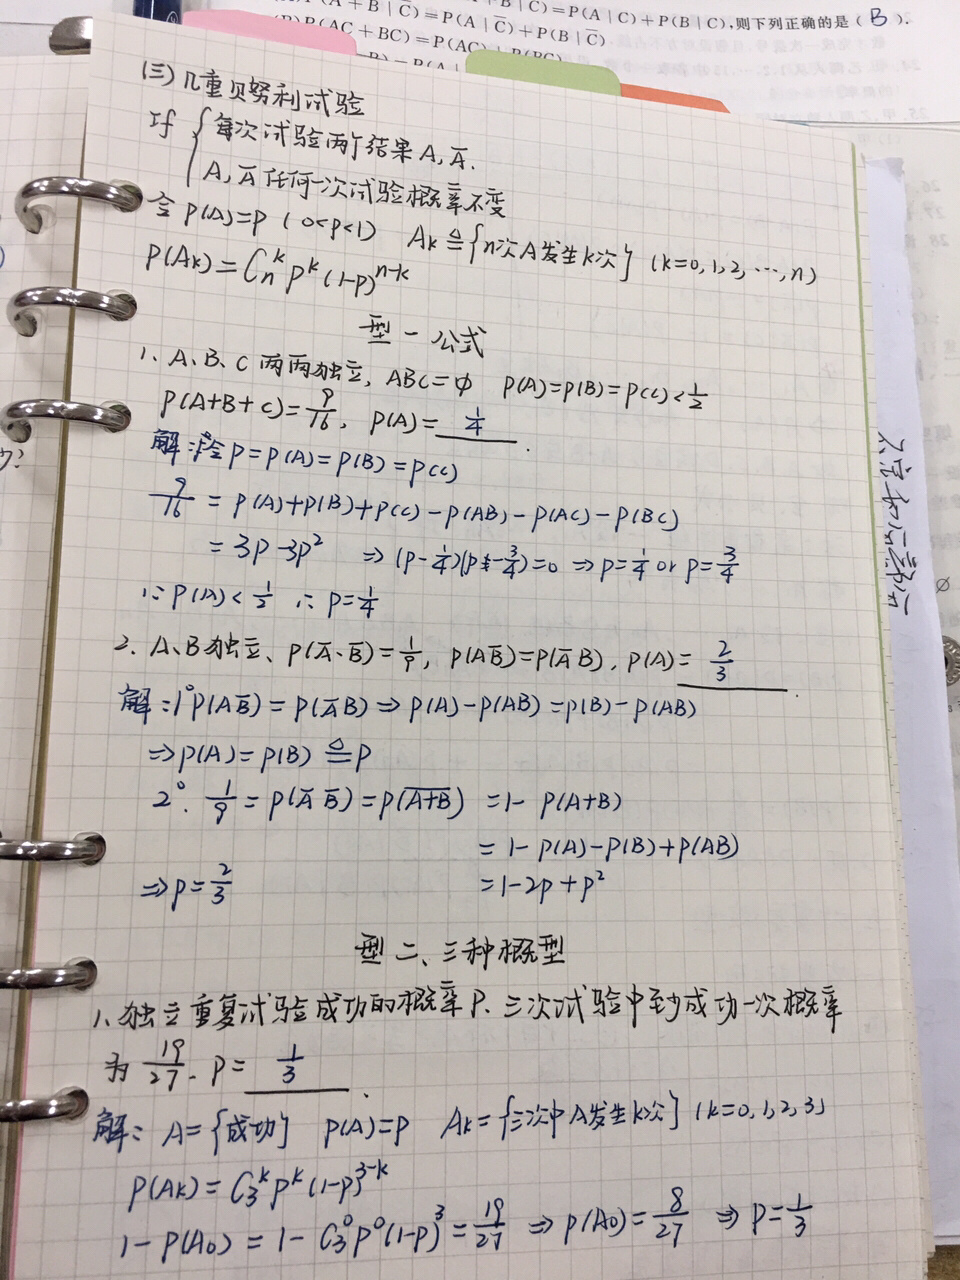 A + B | C̄)=P(A | C̄)+P(B | C̄)
B | C)=P(A | C)+P(B | C),则下列正确的是( B ).
(B)P(AC + BC)=P(AC)+P(BC)
(三)几重贝努利试验
If { 每次试验两个结果A, A̅.
A, A̅任何一次试验概率不变
令 P(A)=P (0<P<1) Ak ≜ {n次A发生k次} (k=0,1,2,…,n)
P(Ak)=C_n^k P^k (1-P)^{n-k}
型一 公式
1、A、B、C 两两独立, ABC=φ P(A)=P(B)=P(C)<1/2
P(A+B+C)=9/16, P(A)= 1/4 .
解:1°令P=P(A)=P(B)=P(C)
9/16 = P(A)+P(B)+P(C)-P(AB)-P(AC)-P(BC)
= 3P-3P² ⇒ (P-1/4)(P-3/4)=0 ⇒ P=1/4 or P=3/4
∵P(A)<1/2 ∴P=1/4
2、A、B独立、P(A̅·B̅)=1/9, P(AB̅)=P(A̅B), P(A)= 2/3 .
解:1°P(AB̅)=P(A̅B)⇒P(A)-P(AB)=P(B)-P(AB)
⇒P(A)=P(B)≜P
2°. 1/9=P(A̅ B̅)=P(\overline{A+B}) =1-P(A+B)
=1-P(A)-P(B)+P(AB)
⇒P=2/3 =1-2P+P²
型二、三种概型
1、独立重复试验成功的概率P.三次试验中至少成功一次概率
为 19/27. P= 1/3 .
解: A={成功} P(A)=P Ak={三次中A发生k次} (k=0,1,2,3)
P(Ak)=C_3^k P^k (1-P)^{3-k}
1-P(A₀) = 1-C_3^0 P^0 (1-P)^3 = 19/27 ⇒ P(A₀)=8/27 ⇒ P=1/3